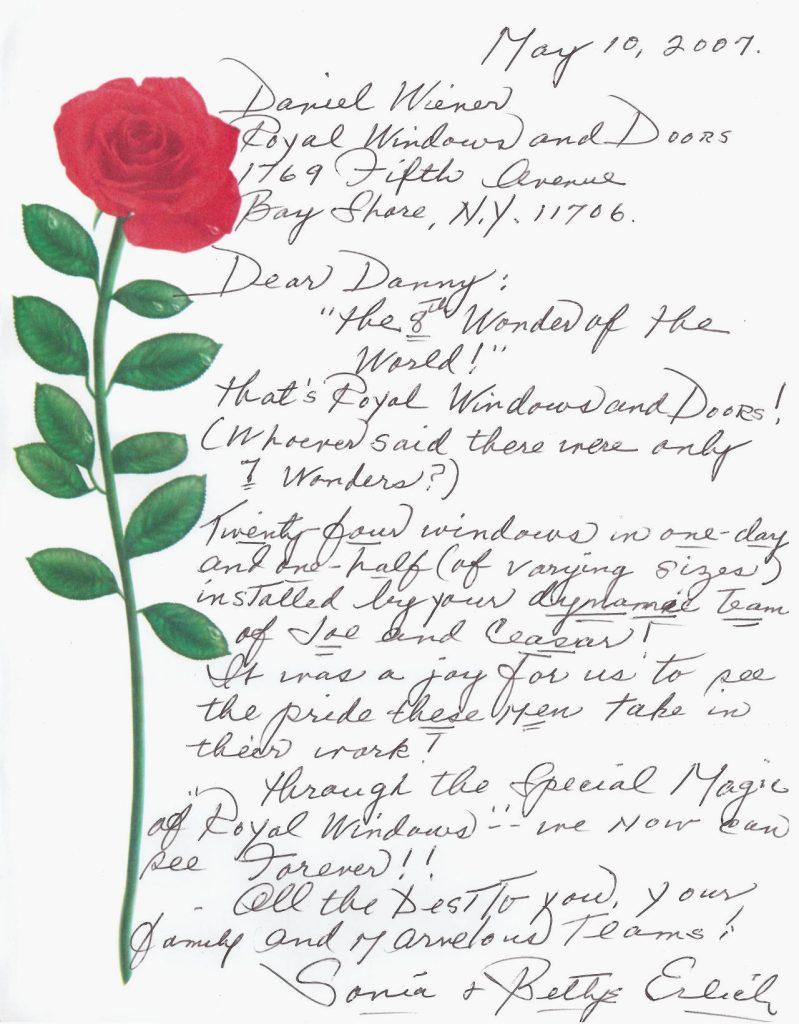 May 10, 2007.
Daniel Wiener
Royal Windows and Doors
1769 Fifth Avenue
Bay Shore, N.Y. 11706.
Dear Danny:
"the 8th Wonder of the
World!"
that's Royal Windows and Doors!
(Whoever said there were only
7 Wonders?)
Twenty four windows in one-day
and one-half (of varying sizes)
installed by your dynamic Team
of Joe and Ceasar!
It was a joy for us to see
the pride these men take in
their work!
Through the Special Magic
of "Royal Windows" -- we now can
see Forever!!
- All the best to you, your
family and Marvelous Teams!
Sonia & Bettye Erlich